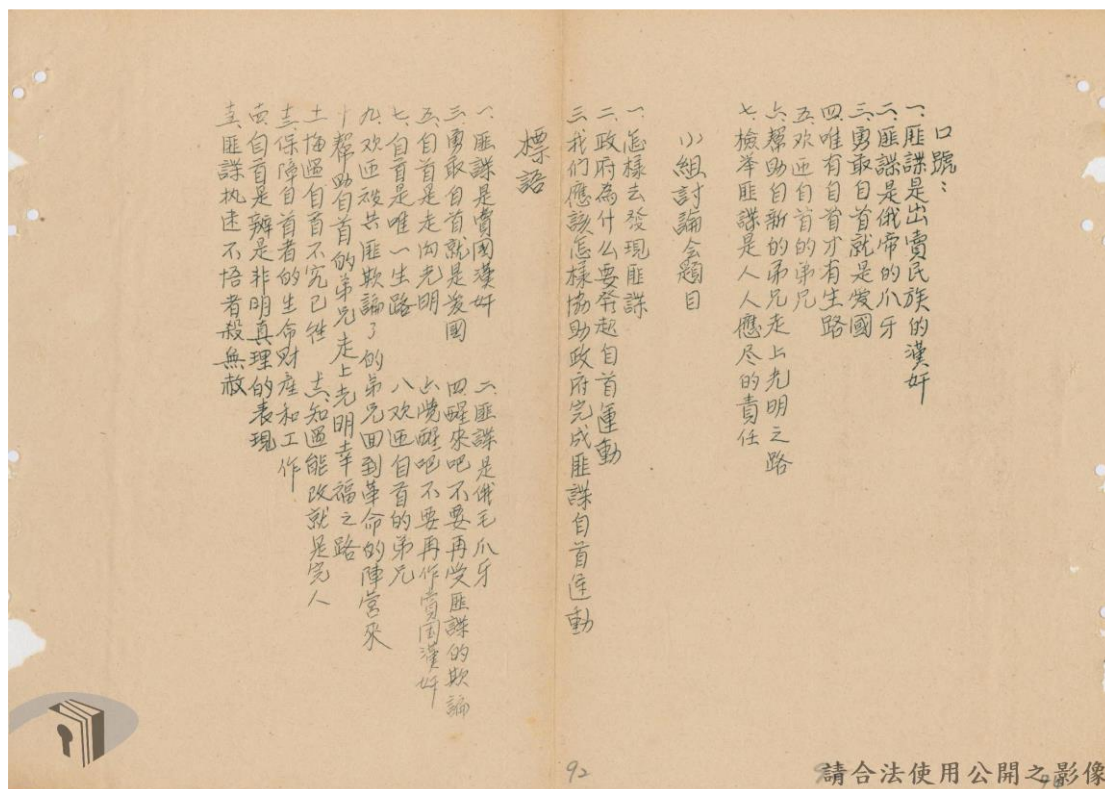 口號：
一、匪諜是出賣民族的漢奸
二、匪諜是俄帝的爪牙
三、勇敢自首就是愛國
四、唯有自首才有生路
五、欢迎自首的弟兄
六、幫助自新的弟兄走上光明之路
七、檢举匪諜是人人應尽的責任
小組討論会題目
一、怎樣去發現匪諜
二、政府為什么要發起自首運動
三、我们應該怎樣協助政府完成匪諜自首運動
標語
一、匪諜是賣國漢奸　二、匪諜是俄毛爪牙
三、勇敢自首就是爱國　四、醒來吧不要再受匪諜的欺騙
五、自首是走向光明　六、觉醒吧不要再作賣国漢奸
七、自首是唯一生路　八、欢迎自首的弟兄
九、欢迎被共匪欺騙了的弟兄回到革命的陣营來
十、幫助自首的弟兄走上光明幸福之路
十一、悔過自首不究已往　十二、知過能改就是完人
十三、保障自首者的生命財產和工作
十四、自首是辨是非明真理的表現
十五、匪諜执迷不悟者殺無赦
92
請合法使用公開之影像